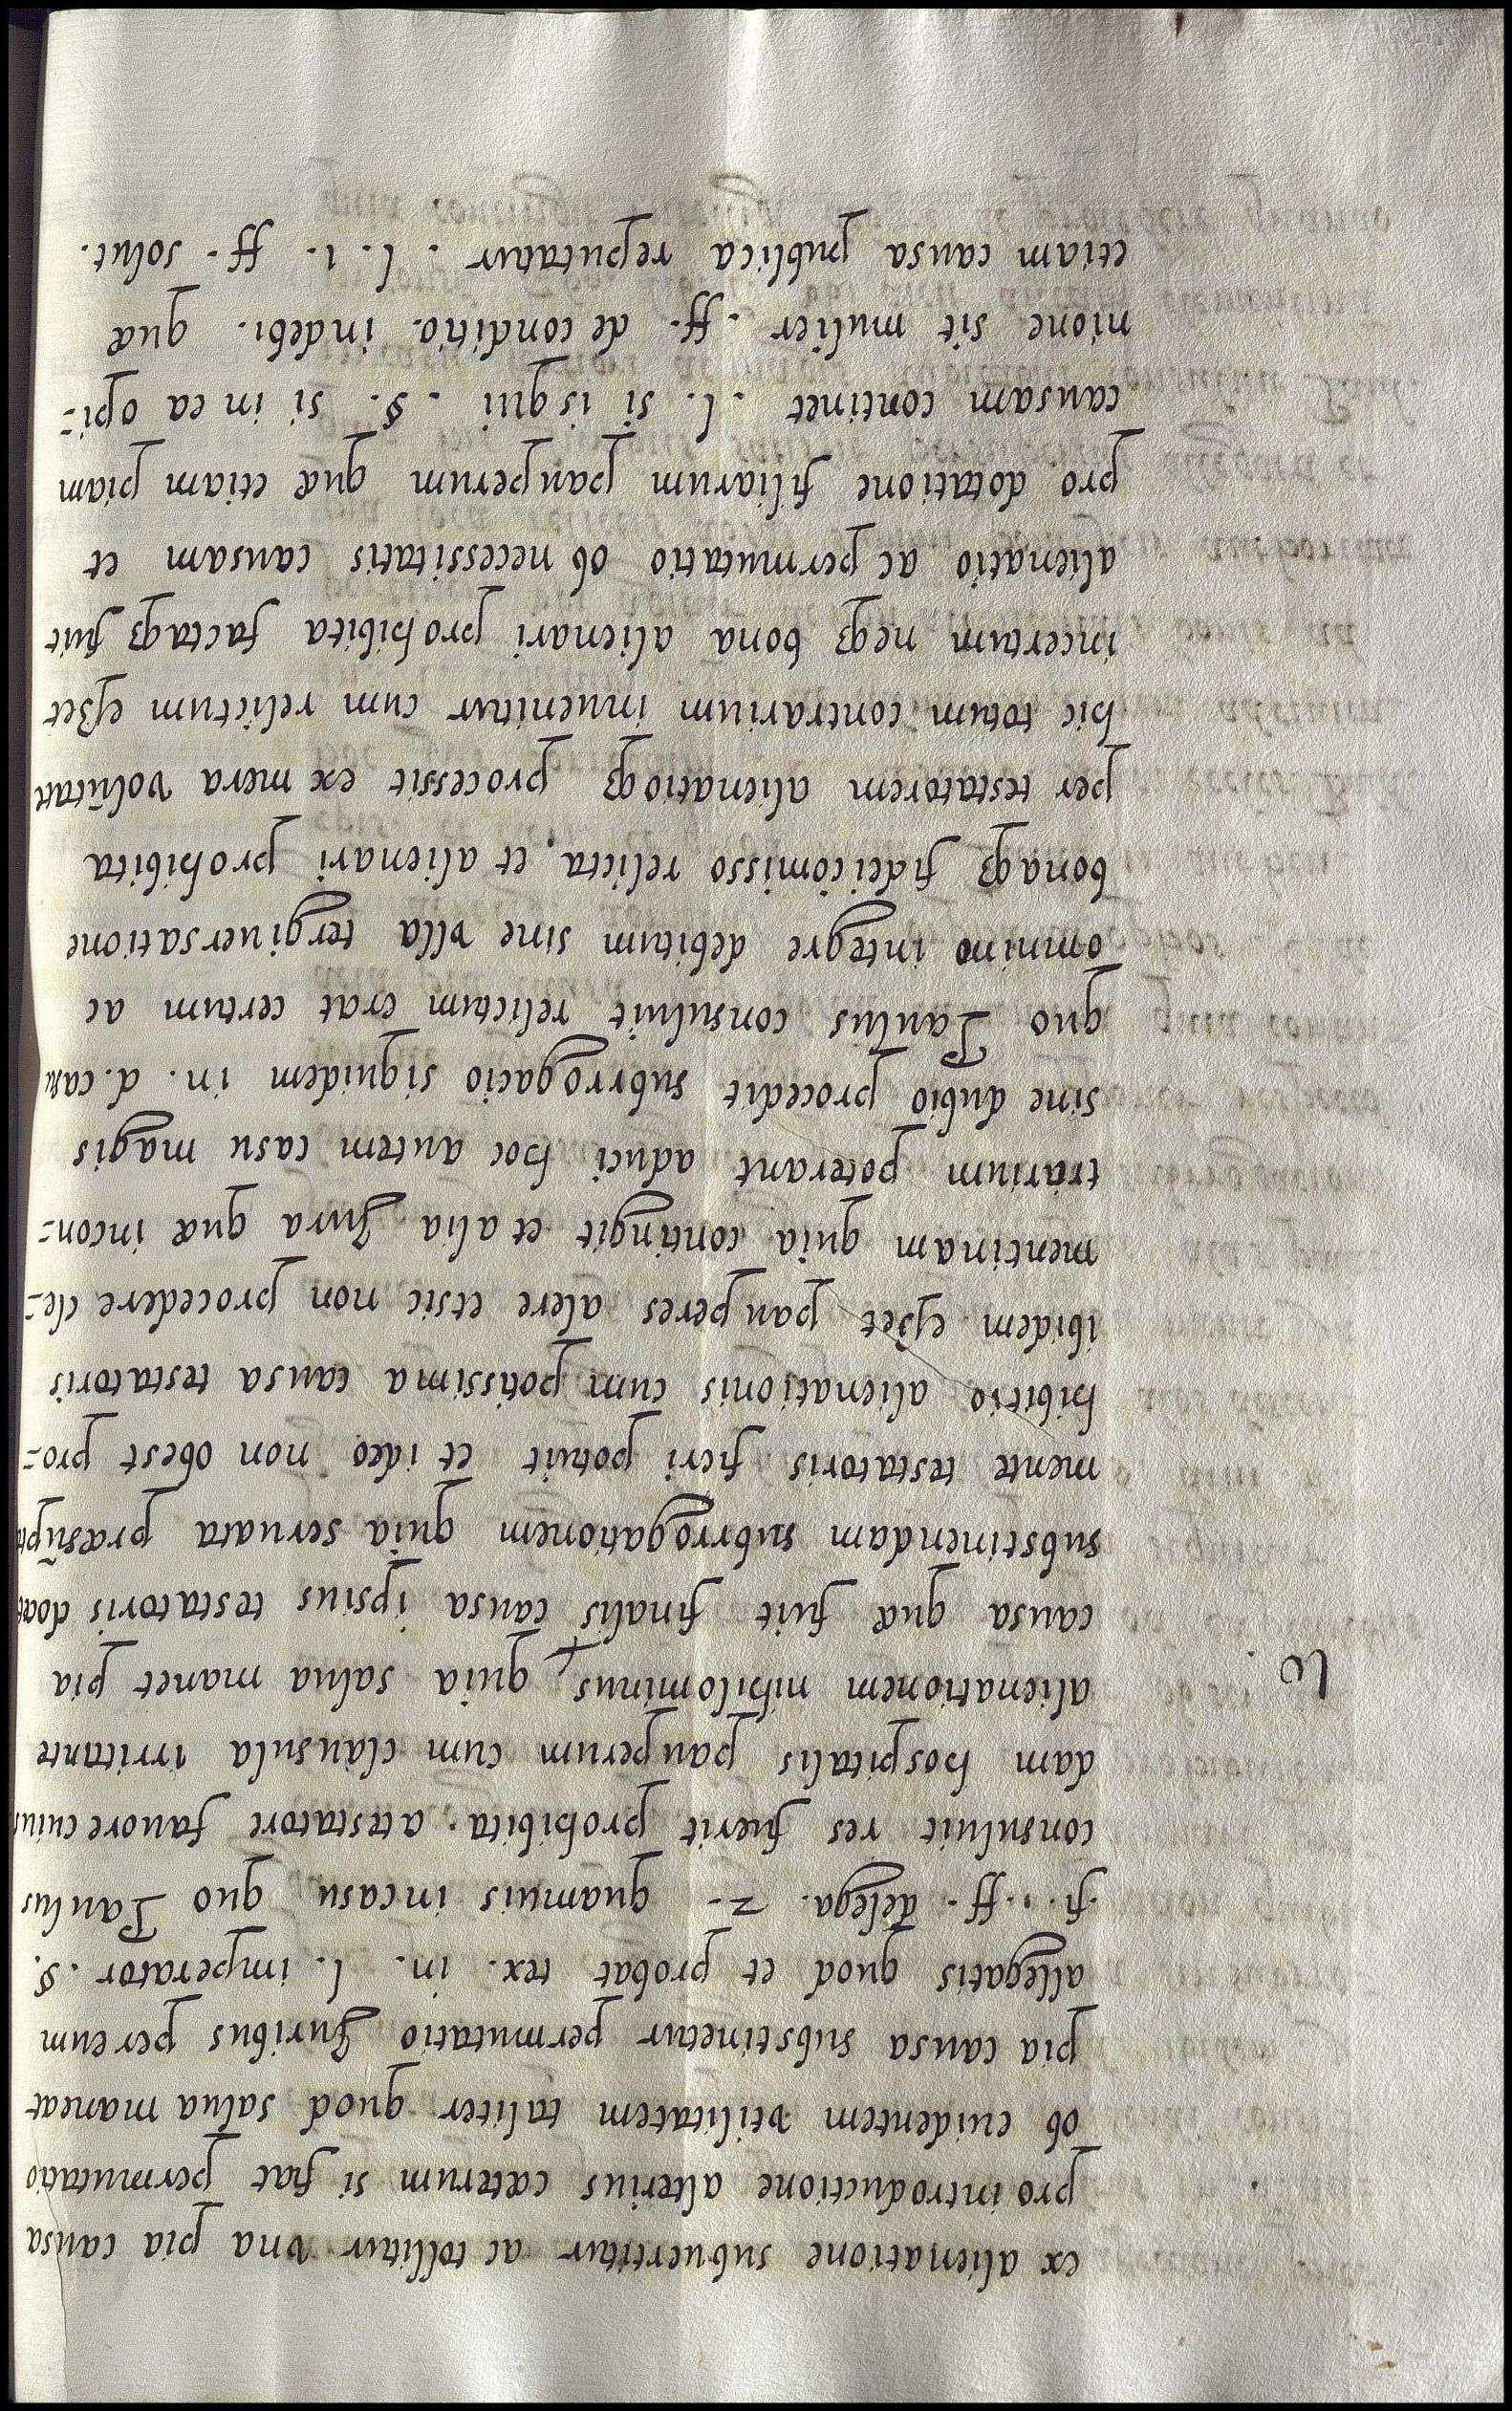 ex alienatione subuertitur ac tollitur vna pia causa
pro introductione alterius cæterum si fiat permutatio
ob euidentem vtilitatem taliter quod salua maneat
pia causa substinetur permutatio Juribus per eum
allegatis quod et probat tex. in. l. imperator. §.
fi.. ff. de lega. 2. quamuis in casu quo Paulus
consuluit res fuerit prohibita. a testatore fauore cuius
dam hospitalis pauperum cum clausula irritante
10. alienationem nihilominus quia salua manet pia
causa quæ fuit finalis causa ipsius testatoris docet
substinendam subrrogationem quia seruata præsũpta
mente testatoris fieri potuit et ideo non obest pro-
hibitio alienationis cum potissima causa testatoris
ibidem eßet pauperes alere et sic non procedere cle-
mentinam quia contingit et alia Jura quæ in con-
trarium poterant aduci hoc autem casu magis
sine dubio procedit subrrogacio siquidem in. d. casu
quo Paulus consuluit relictum erat certum ac
omnino integre debitum sine vlla tergiuersatione
bonaqȝ fideicõmisso relicta, et alienari prohibita
per testatorem alienatioqȝ processit ex mera volũtate
hic totum contrarium inuenitur cum relictum eßet
incertum neqȝ bona alienari prohibita factaqȝ fuit
alienatio ac permutatio ob necessitatis causam et
pro dotatione filiarum pauperum quæ etiam piam
causam continet. l. si is qui. §. si in ea opi-
nione sit mulier. ff. de conditio. indebi. quæ
etiam causa publica reputatur. l. 1. ff. solut.